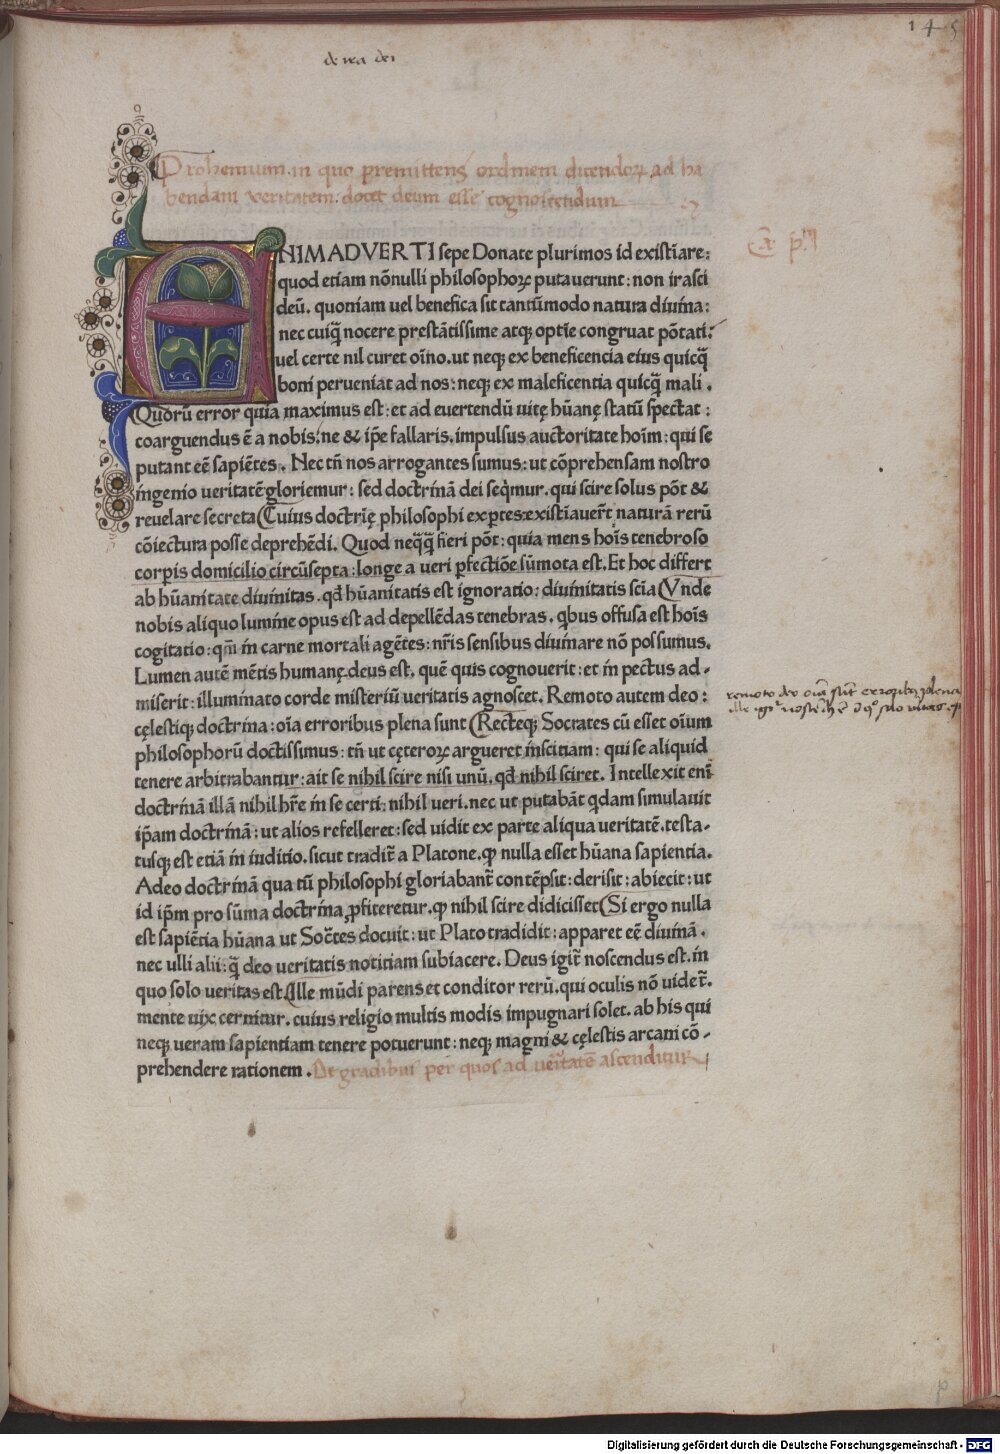 145
de ira dei
Prohemium in quo premittens ordinem dicendoꝝ ad ha
bendam veritatem docet deum esse cognoscendum
Ca p.m
ANIMADVERTI sepe Donate plurimos id existīare:
quod etiam nōnulli philosophoꝝ putauerunt: non irasci
deū. quoniam uel benefica sit tantūmodo natura diuina:
nec cuiq̄ nocere prestātissime atq; optīe congruat pōtati:
uel certe nil curet oīno. ut neq; ex beneficencia eius quicq̄
boni perueniat ad nos: neq; ex maleficentia quicq̄ mali.
Quorū error quia maximus est: et ad euertendū uitę hūanę statū spectat:
coarguendus ē a nobis: ne & ip̄e fallaris. impulsus auctoritate hoīm: qui se
putant eē sapiētes. Nec tn̄ nos arrogantes sumus: ut cōprehensam nostro
ingenio ueritatē gloriemur: sed doctrinā dei seq̇mur. qui scire solus pōt &
reuelare secreta (Cuius doctrīę philosophi exp̱tes: existīauer̄t naturā rerū
cōiectura posse deprehēdi. Quod neq̄q̄ fieri pōt: quia mens hoīs tenebroso
corp̱is domicilio circūsepta: longe a ueri p̱fectiōe sūmota est. Et hoc differt
ab hūanitate diuinitas. qd̄ hūanitatis est ignoratio: diuinitatis scīa (Vnde
nobis aliquo lumine opus est ad depellēdas tenebras. q̇bus offusa est hoīs
cogitatio: qm̄ in carne mortali agētes: nr̄is sensibus diuinare nō possumus.
Lumen autē mētis humanę deus est. quē quis cognouerit: et in pectus ad-
miserit: illuminato corde misteriū ueritatis agnoscet. Remoto autem deo:
cęlestiq; doctrina: oīa erroribus plena sunt (Recteq; Socrates cū esset oīum
philosophorū doctissimus: tn̄ ut cęteroꝝ argueret inscitiam: qui se aliquid
tenere arbitrabantur: ait se nihil scire nisi unū. qd̄ nihil sciret. Intellexit enī
doctrinā illā nihil hr̄e in se certi: nihil ueri. nec ut putabāt q̇dam simulauit
ip̄am doctrinā: ut alios refelleret: sed uidit ex parte aliqua ueritatē. testa-
tusq; est etiā in iuditio. sicut tradit̄ a Platone. ꝙ nulla esset hūana sapientia.
Adeo doctrinā qua tū philosophi gloriabant̄ contēpsit: derisit: abiecit: ut
id ip̄m pro sūma doctrina ꝓfiteretur. ꝙ nihil scire didicisset (Si ergo nulla
est sapiētia hūana ut Soc̄tes docuit: ut Plato tradidit: apparet eē diuinā.
nec ulli alii: q̄ deo ueritatis notitiam subiacere. Deus igit̄ noscendus est. in
quo solo ueritas est. (Ille mūdi parens et conditor rerū. qui oculis nō uidet̄.
mente uix cernitur. cuius religio multis modis impugnari solet. ab his qui
neq; ueram sapientiam tenere potuerunt: neq; magni & cęlestis arcani cō-
prehendere rationem. De gradibus per quos ad ueritatē ascenditur
remoto deo oīa sūt erroribꝰ plena